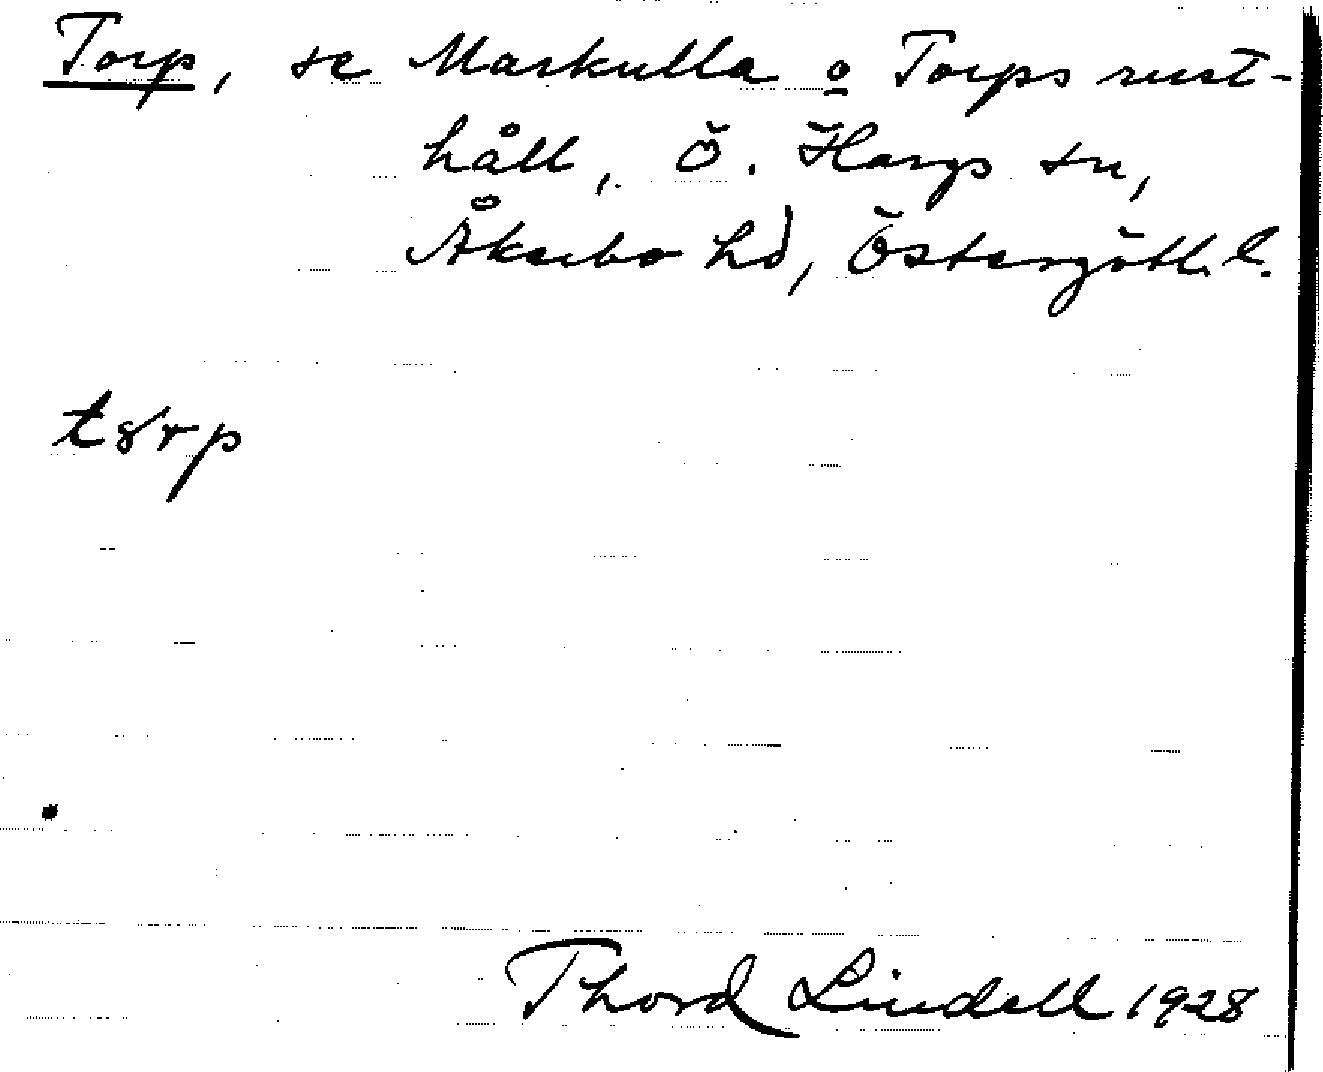 Torp, se Markulla o Torps rust-
håll, Ö. Hargs sn,
Åkerbo hd, Östergötl. l.
tȣrp
Thord Lindell 1928